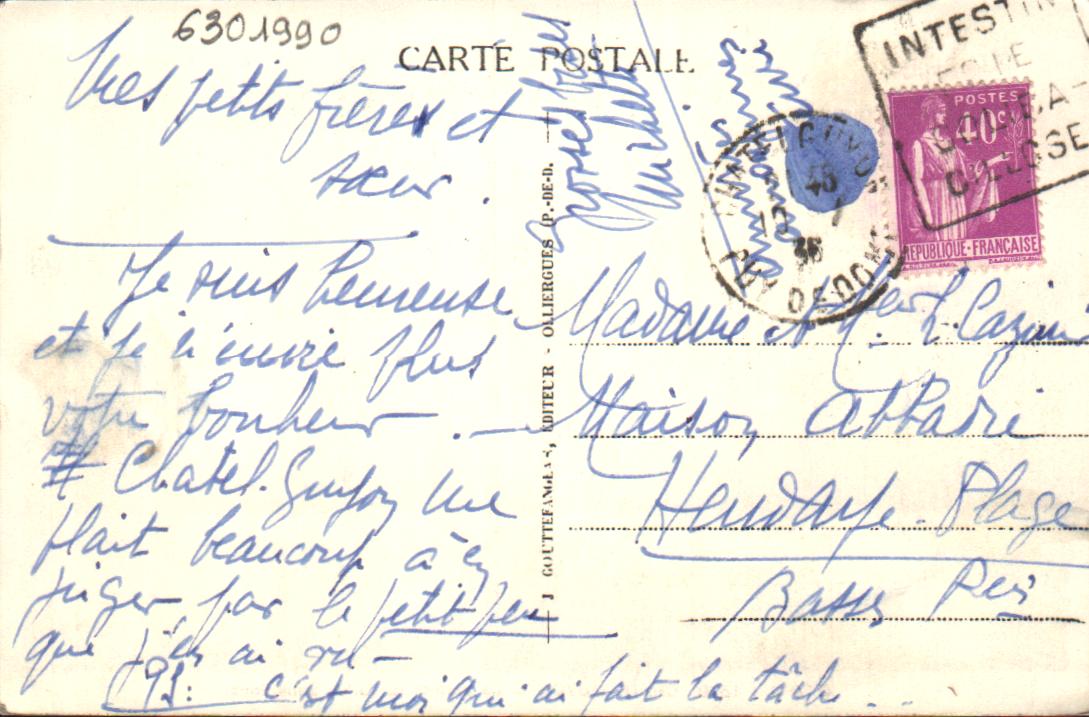 6301990
CARTE POSTALE
Mes petits frères et
sœur.
Je suis heureuse
et je l'envie plus
votre bonheur.
Chatel-Guyon me
plait beaucoup à en
juger par le petit peu
que j'en ai vu -
P.S: c'est moi qui ai fait la tâche...
grosses bises
Michette
J GOUTTEFANGEAS, ÉDITEUR - OLLIERGUES (P.-DE-D.
CHATELGUYON
45
10
36
PUY DE DOME
INTESTIN
FOIE
COLIBA-
CILLOSE
POSTES
40c
REPUBLIQUE-FRANÇAISE
Madame et Mr L Cazin
Maison Abbadie
Hendaye-Plage
Basses Prés